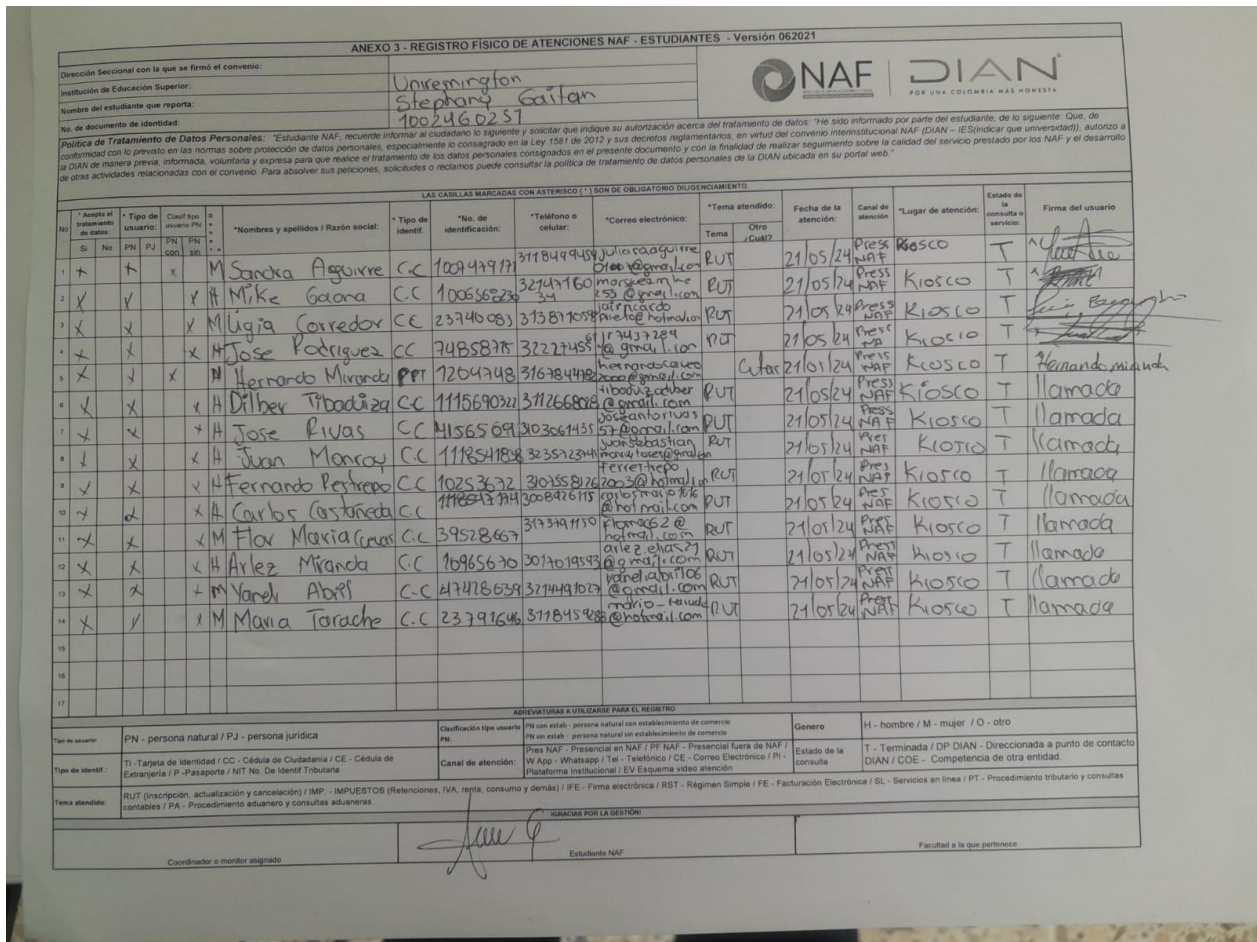 ANEXO 3 - REGISTRO FÍSICO DE ATENCIONES NAF - ESTUDIANTES - Versión 062021
Dirección Seccional con la que se firmó el convenio:
Institución de Educación Superior: Uniremington
Nombre del estudiante que reporta: Stephany Gaitan
No. de documento de identidad: 1002460257
NAF DIAN
POR UNA COLOMBIA MÁS HONESTA
Política de Tratamiento de Datos Personales: "Estudiante NAF, recuerde informar al ciudadano lo siguiente y solicitar que indique su autorización acerca del tratamiento de datos: "He sido informado por parte del estudiante, de lo siguiente: Que, de
conformidad con lo previsto en las normas sobre protección de datos personales, especialmente lo consagrado en la Ley 1581 de 2012 y sus decretos reglamentarios, en virtud del convenio interinstitucional NAF (DIAN – IES(indicar que universidad)), autorizo a
la DIAN de manera previa, informada, voluntaria y expresa para que realice el tratamiento de los datos personales consignados en el presente documento y con la finalidad de realizar seguimiento sobre la calidad del servicio prestado por los NAF y el desarrollo
de otras actividades relacionadas con el convenio. Para absolver sus peticiones, solicitudes o reclamos puede consultar la política de tratamiento de datos personales de la DIAN ubicada en su portal web."
LAS CASILLAS MARCADAS CON ASTERISCO ( * ) SON DE OBLIGATORIO DILIGENCIAMIENTO
No * Acepta el tratamiento de datos: * Tipo de usuario: Clasif tipo usuario PN: *Nombres y apellidos / Razón social: * Tipo de identif. *No. de identificación: *Teléfono o celular: *Correo electrónico: *Tema atendido: Fecha de la atención: Canal de atención *Lugar de atención: Estado de la consulta o servicio: Firma del usuario
Si No PN PJ PN con PN sin Tema Otro ¿Cuál?
1 x x x M Sandra Aguirre C.C 1007479171 3118499459 RUT 21/05/24 Press NAF Kiosco T
2 x x x H Mike Gaona C.C RUT 21/05/24 Press NAF Kiosco T
3 x x x M Ligia Corredor CC 23740083 3138771058 RUT 21/05/24 Press NAF Kiosco T
4 x x x H Jose Rodriguez CC 32227455 RUT 21/05/24 Kiosco T
5 x x x Hernando Miranda PPT 1204748 3167844782 Citas 21/05/24 Press NAF Kiosco T Hernando miranda
6 x x x H Dilber Tibaduiza C.C 1115690322 @gmail.com RUT 21/05/24 Press NAF Kiosco T llamada
7 x x x H Jose Rivas CC 3103061435 joseantorivas 57@gmail.com RUT 21/05/24 Press NAF Kiosco T llamada
8 x x x H Juan Monroy C.C RUT 21/05/24 Pres NAF Kiosco T llamada
9 x x x H Fernando Restrepo C.C 10253672 3107558126 RUT 21/05/24 Pres NAF Kiosco T llamada
10 x x x H Carlos Castañeda C.C 3008976115 @hotmail.com RUT 21/05/24 Pres NAF Kiosco T llamada
11 x x x M Flor Maria Cuevas C.C 39528667 3173791150 hotmail.com RUT 21/05/24 NAF Kiosco T llamada
12 x x x H Arlez Miranda C.C 10965670 3017019543 arlez.elias21 @gmail.com RUT 21/05/24 Press NAF Kiosco T llamada
13 x x x M Yaneli Abril C-C 47428639 3214491027 yaneliabril106 @gmail.com RUT 21/05/24 Press NAF Kiosco T llamada
14 x x x M Maria Tarache C.C 23791646 3118459288 @hotmail.com RUT 21/05/24 NAF Kiosco T llamada
15
16
17
ABREVIATURAS A UTILIZARSE PARA EL REGISTRO
Tipo de usuario: PN - persona natural / PJ - persona jurídica
Clasificación tipo usuario PN: PN con estab - persona natural con establecimiento de comercio
PN sin estab - persona natural sin establecimiento de comercio
Genero H - hombre / M - mujer / O - otro
Tipo de identif.: TI -Tarjeta de Identidad / CC - Cédula de Ciudadanía / CE - Cédula de
Extranjería / P -Pasaporte / NIT No. De Identif Tributaria
Canal de atención: Pres NAF - Presencial en NAF / PF NAF - Presencial fuera de NAF /
W App - Whatsapp / Tel - Telefónico / CE - Correo Electrónico / PI -
Plataforma Institucional / EV Esquema video atención
Estado de la consulta T - Terminada / DP DIAN - Direccionada a punto de contacto
DIAN / COE - Competencia de otra entidad.
Tema atendido: RUT (Inscripción, actualización y cancelación) / IMP. - IMPUESTOS (Retenciones, IVA, renta, consumo y demás) / IFE - Firma electrónica / RST - Régimen Simple / FE - Facturación Electrónica / SL - Servicios en línea / PT - Procedimiento tributario y consultas
contables / PA - Procedimiento aduanero y consultas aduaneras
¡GRACIAS POR LA GESTIÓN!
Coordinador o monitor asignado
Estudiante NAF
Facultad a la que pertenece